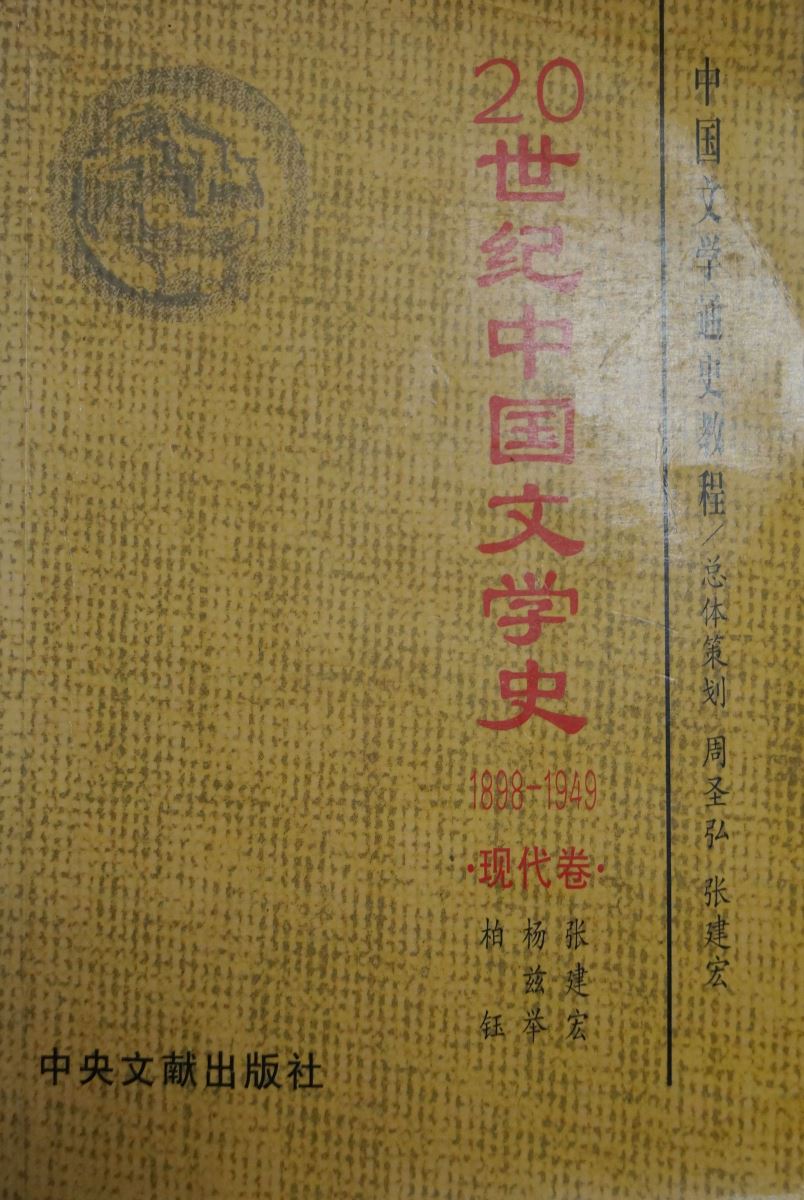 中国文学通史教程/总体策划 周圣弘 张建宏
20世纪中国文学史
1898-1949
·现代卷·
张建宏
杨兹举
柏钰
中央文献出版社